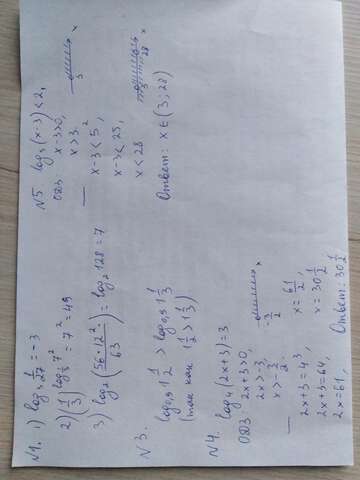 N1. 1) log₃ 1/27 = -3
2) (1/3)^(log_(1/3) 7²) = 7² = 49
3) log₂ (56 · 12² / 63) = log₂ 128 = 7
N3.
log₀,₉ 1 1/2 > log₀,₉ 1 1/3
(так как 1 1/2 > 1 1/3)
N4. log₄ (2x+3) = 3
ОДЗ 2x+3>0,
2x > -3,
x > -3/2.
-3/2 x
2x+3 = 4³,
2x+3 = 64,
2x = 61,
x = 61/2,
x = 30 1/2
Ответ: 30 1/2
N5 log₅ (x-3) < 2,
ОДЗ. x-3>0,
x > 3.
3 x
x-3 < 5²,
x-3 < 25,
x < 28
3 28 x
Ответ: x ∈ (3; 28)